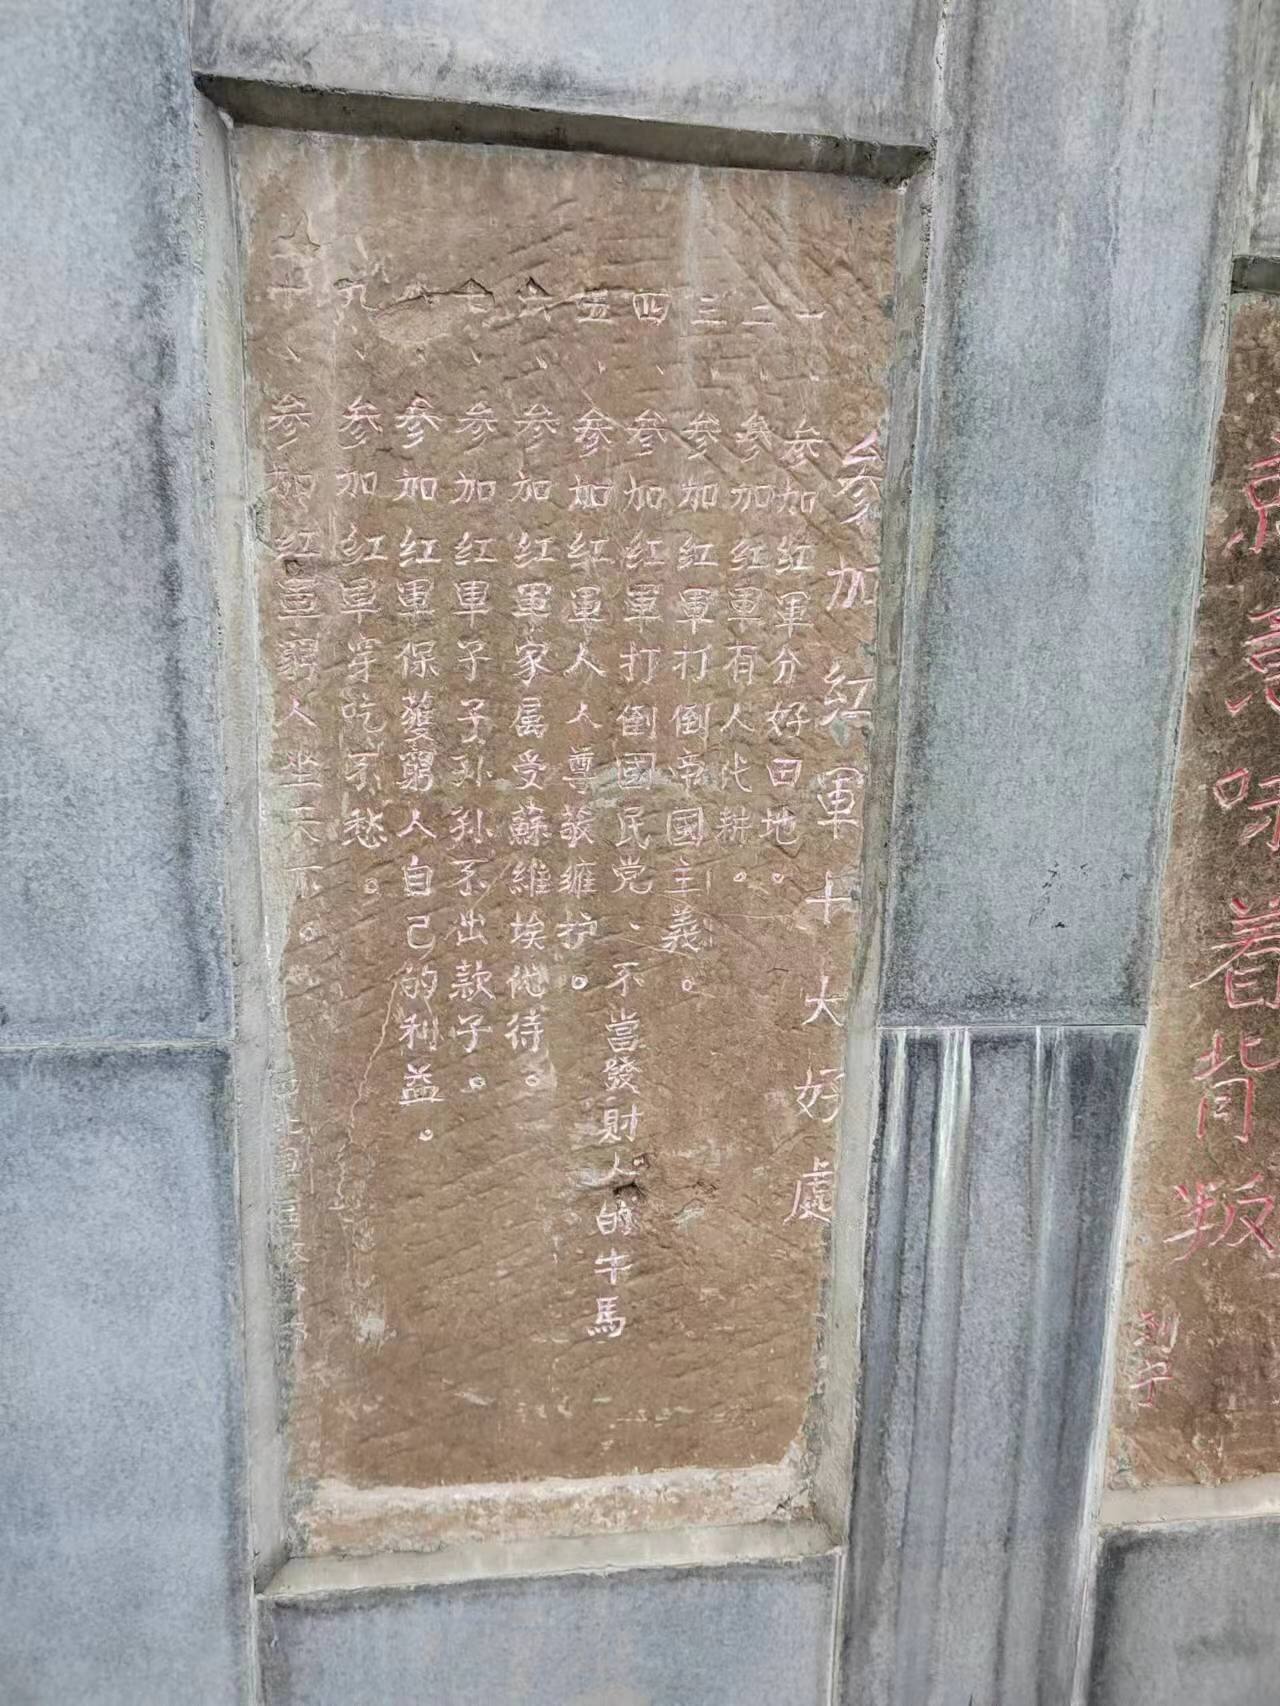 参加红軍十大好處
一、参加红軍分好田地。
二、参加红軍有人代耕。
三、参加红軍打倒帝國主義。
四、参加红軍打倒國民党、不當發財人的牛馬
五、参加红軍人人尊敬雍护。
六、参加红軍家属受蘇維埃优待。
七、参加红軍子子孙孙不出款子。
八、参加红軍保護窮人自己的利益。
九、参加红軍穿吃不愁。
十、参加红軍窮人坐天下。
意味着背叛
列宁